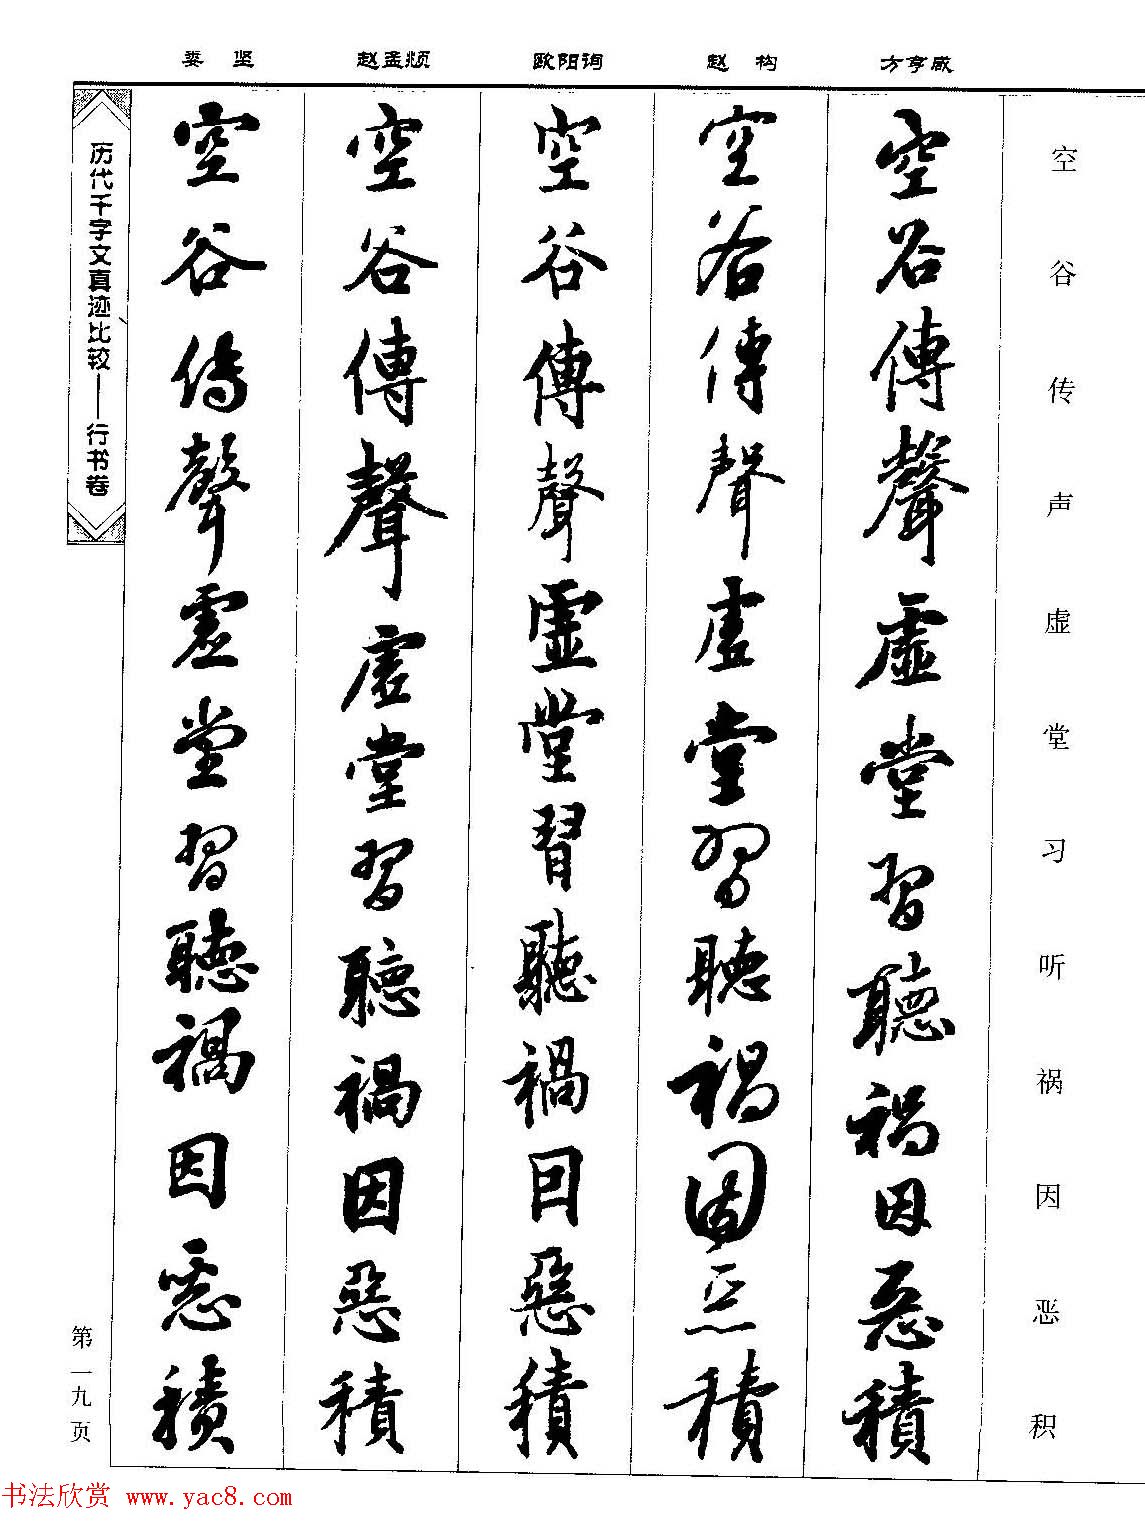 娄 坚 赵孟頫 欧阳询 赵 构 方亨咸
空谷传声虚堂习听祸因恶积
空谷傳聲虛堂習聽禍因惡積
空谷傳聲虛堂習聽禍因惡積
空谷傳聲虛堂習聽禍因惡積
空谷傳聲虛堂習聽禍因惡積
空谷傳聲虛堂習聽禍因惡積
历代千字文真迹比较——行书卷
第一九页
书法欣赏 www.yac8.com